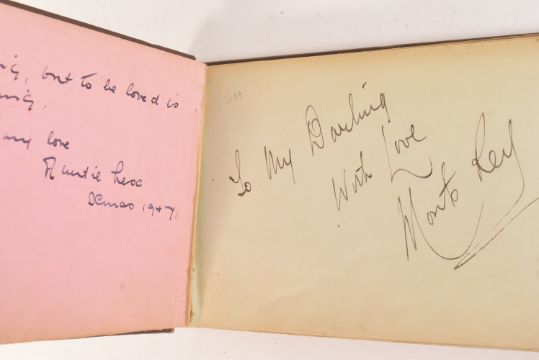 but to be loved is
my love
Auntie
Xmas 1947
To My Darling
With Love
Monte Rey